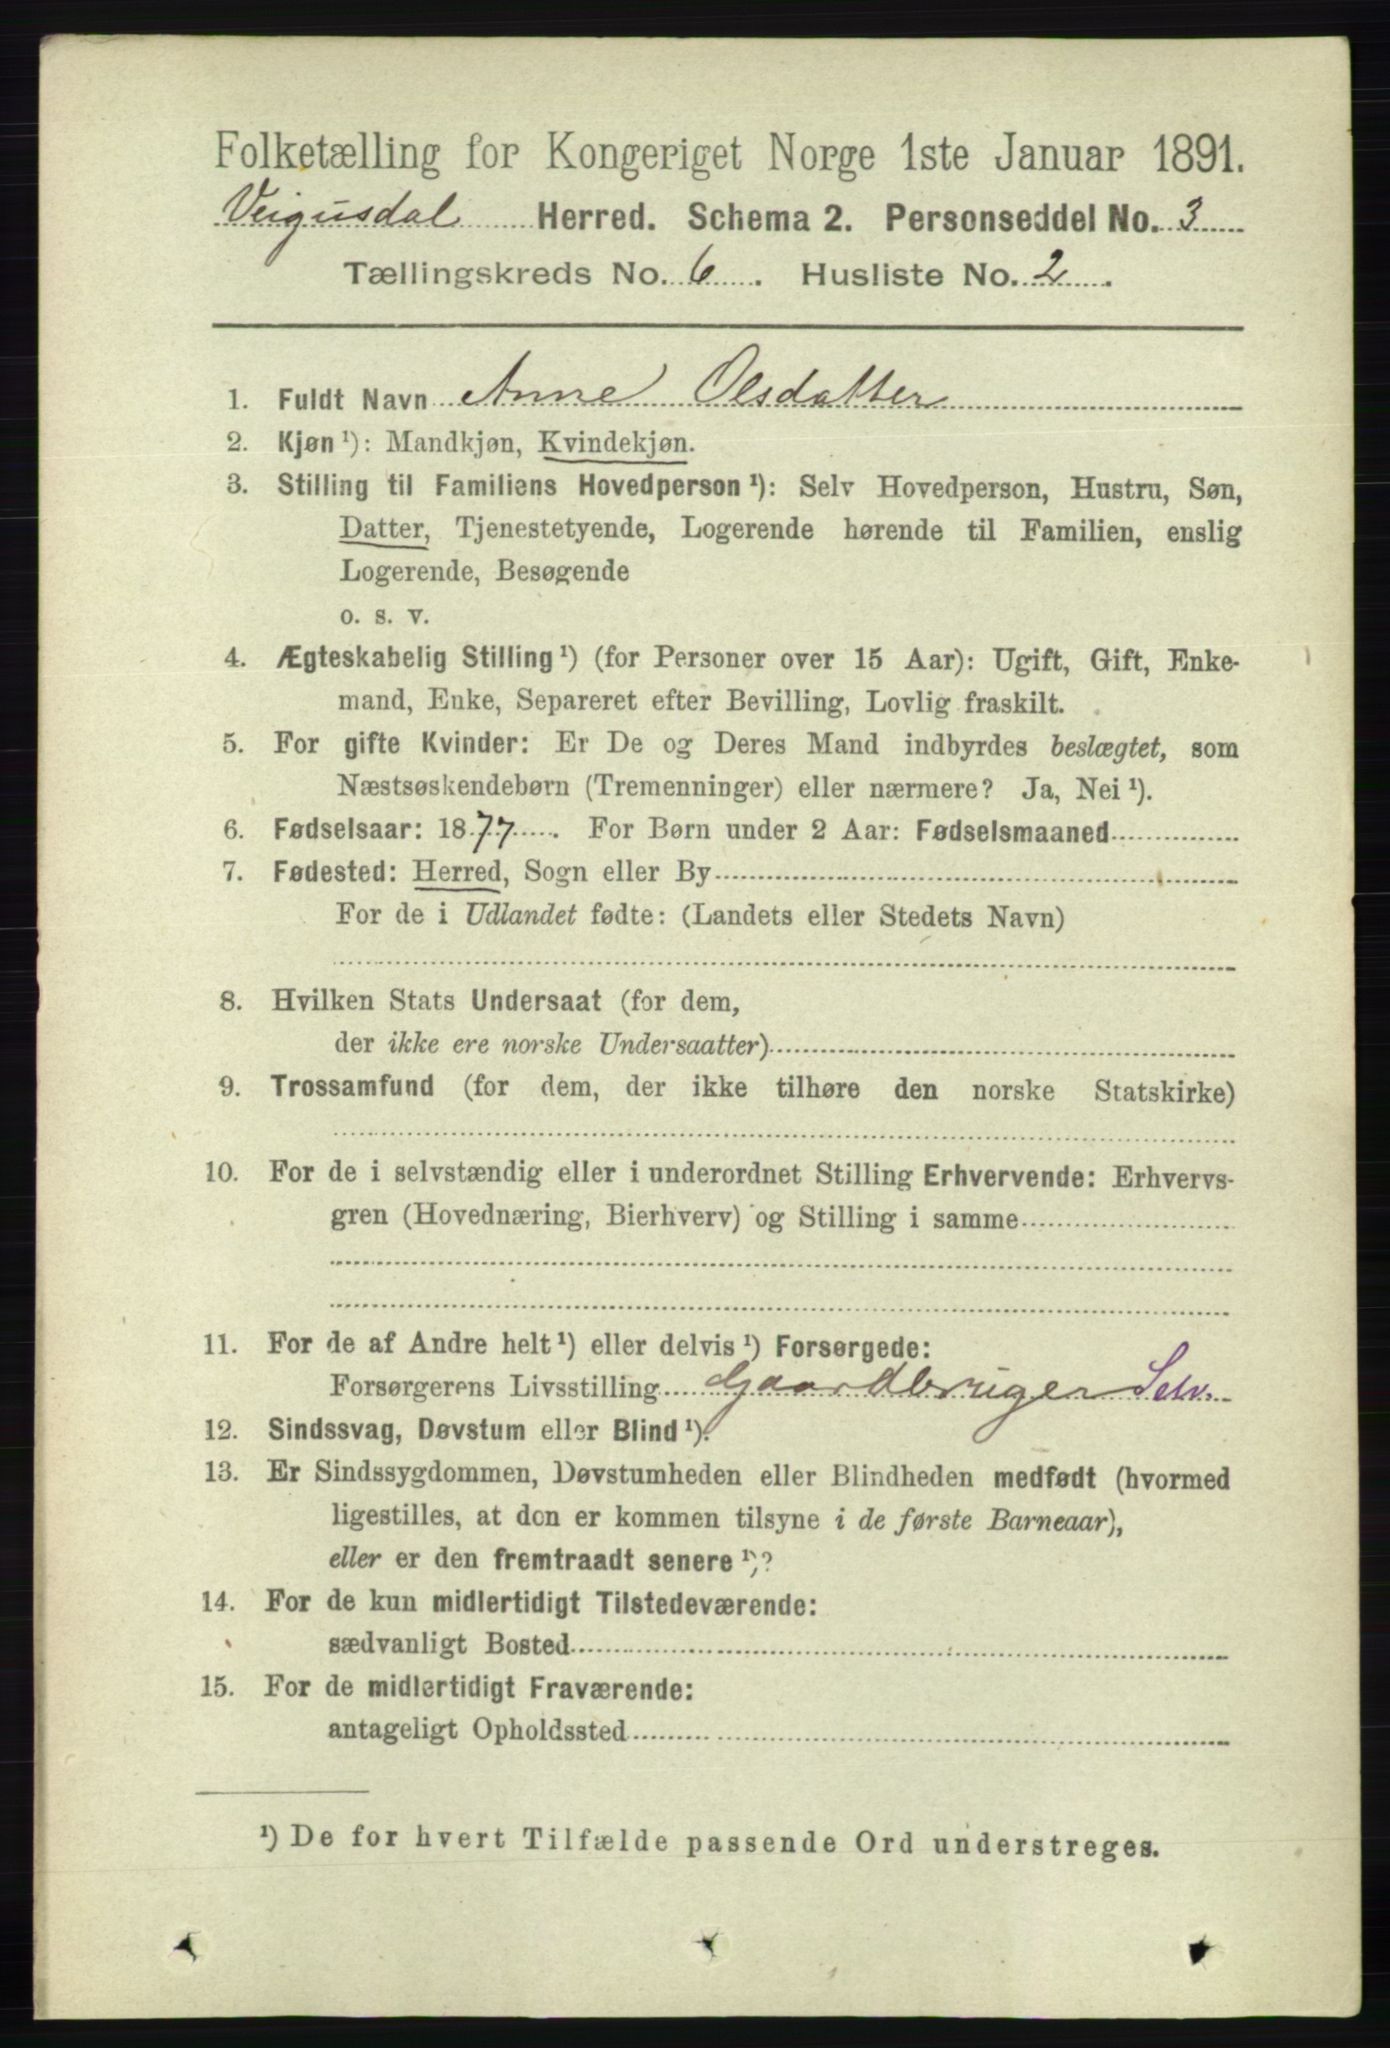 Folketælling for Kongeriget Norge 1ste Januar 1891.
Veigusdal Herred. Schema 2. Personseddel No. 3
Tællingskreds No. 6. Husliste No. 2.
1. Fuldt Navn Anne Olsdatter
2. Kjøn¹): Mandkjøn, Kvindekjøn.
3. Stilling til Familiens Hovedperson¹): Selv Hovedperson, Hustru, Søn,
Datter, Tjenestetyende, Logerende hørende til Familien, enslig
Logerende, Besøgende
o. s. v.
4. Ægteskabelig Stilling¹) (for Personer over 15 Aar): Ugift, Gift, Enke-
mand, Enke, Separeret efter Bevilling, Lovlig fraskilt.
5. For gifte Kvinder: Er De og Deres Mand indbyrdes beslægtet, som
Næstsøskendebørn (Tremenninger) eller nærmere? Ja, Nei¹).
6. Fødselsaar: 1877. For Børn under 2 Aar: Fødselsmaaned
7. Fødested: Herred, Sogn eller By
For de i Udlandet fødte: (Landets eller Stedets Navn)
8. Hvilken Stats Undersaat (for dem,
der ikke ere norske Undersaatter)
9. Trossamfund (for dem, der ikke tilhøre den norske Statskirke)
10. For de i selvstændig eller i underordnet Stilling Erhvervende: Erhvervs-
gren (Hovednæring, Bierhverv) og Stilling i samme
11. For de af Andre helt¹) eller delvis¹) Forsørgede:
Forsørgerens Livsstilling Gaardbruger Selv.
12. Sindssvag, Døvstum eller Blind¹).
13. Er Sindssygdommen, Døvstumheden eller Blindheden medfødt (hvormed
ligestilles, at den er kommen tilsyne i de første Barneaar),
eller er den fremtraadt senere¹)?
14. For de kun midlertidigt Tilstedeværende:
sædvanligt Bosted
15. For de midlertidigt Fraværende:
antageligt Opholdssted
¹) De for hvert Tilfælde passende Ord understreges.